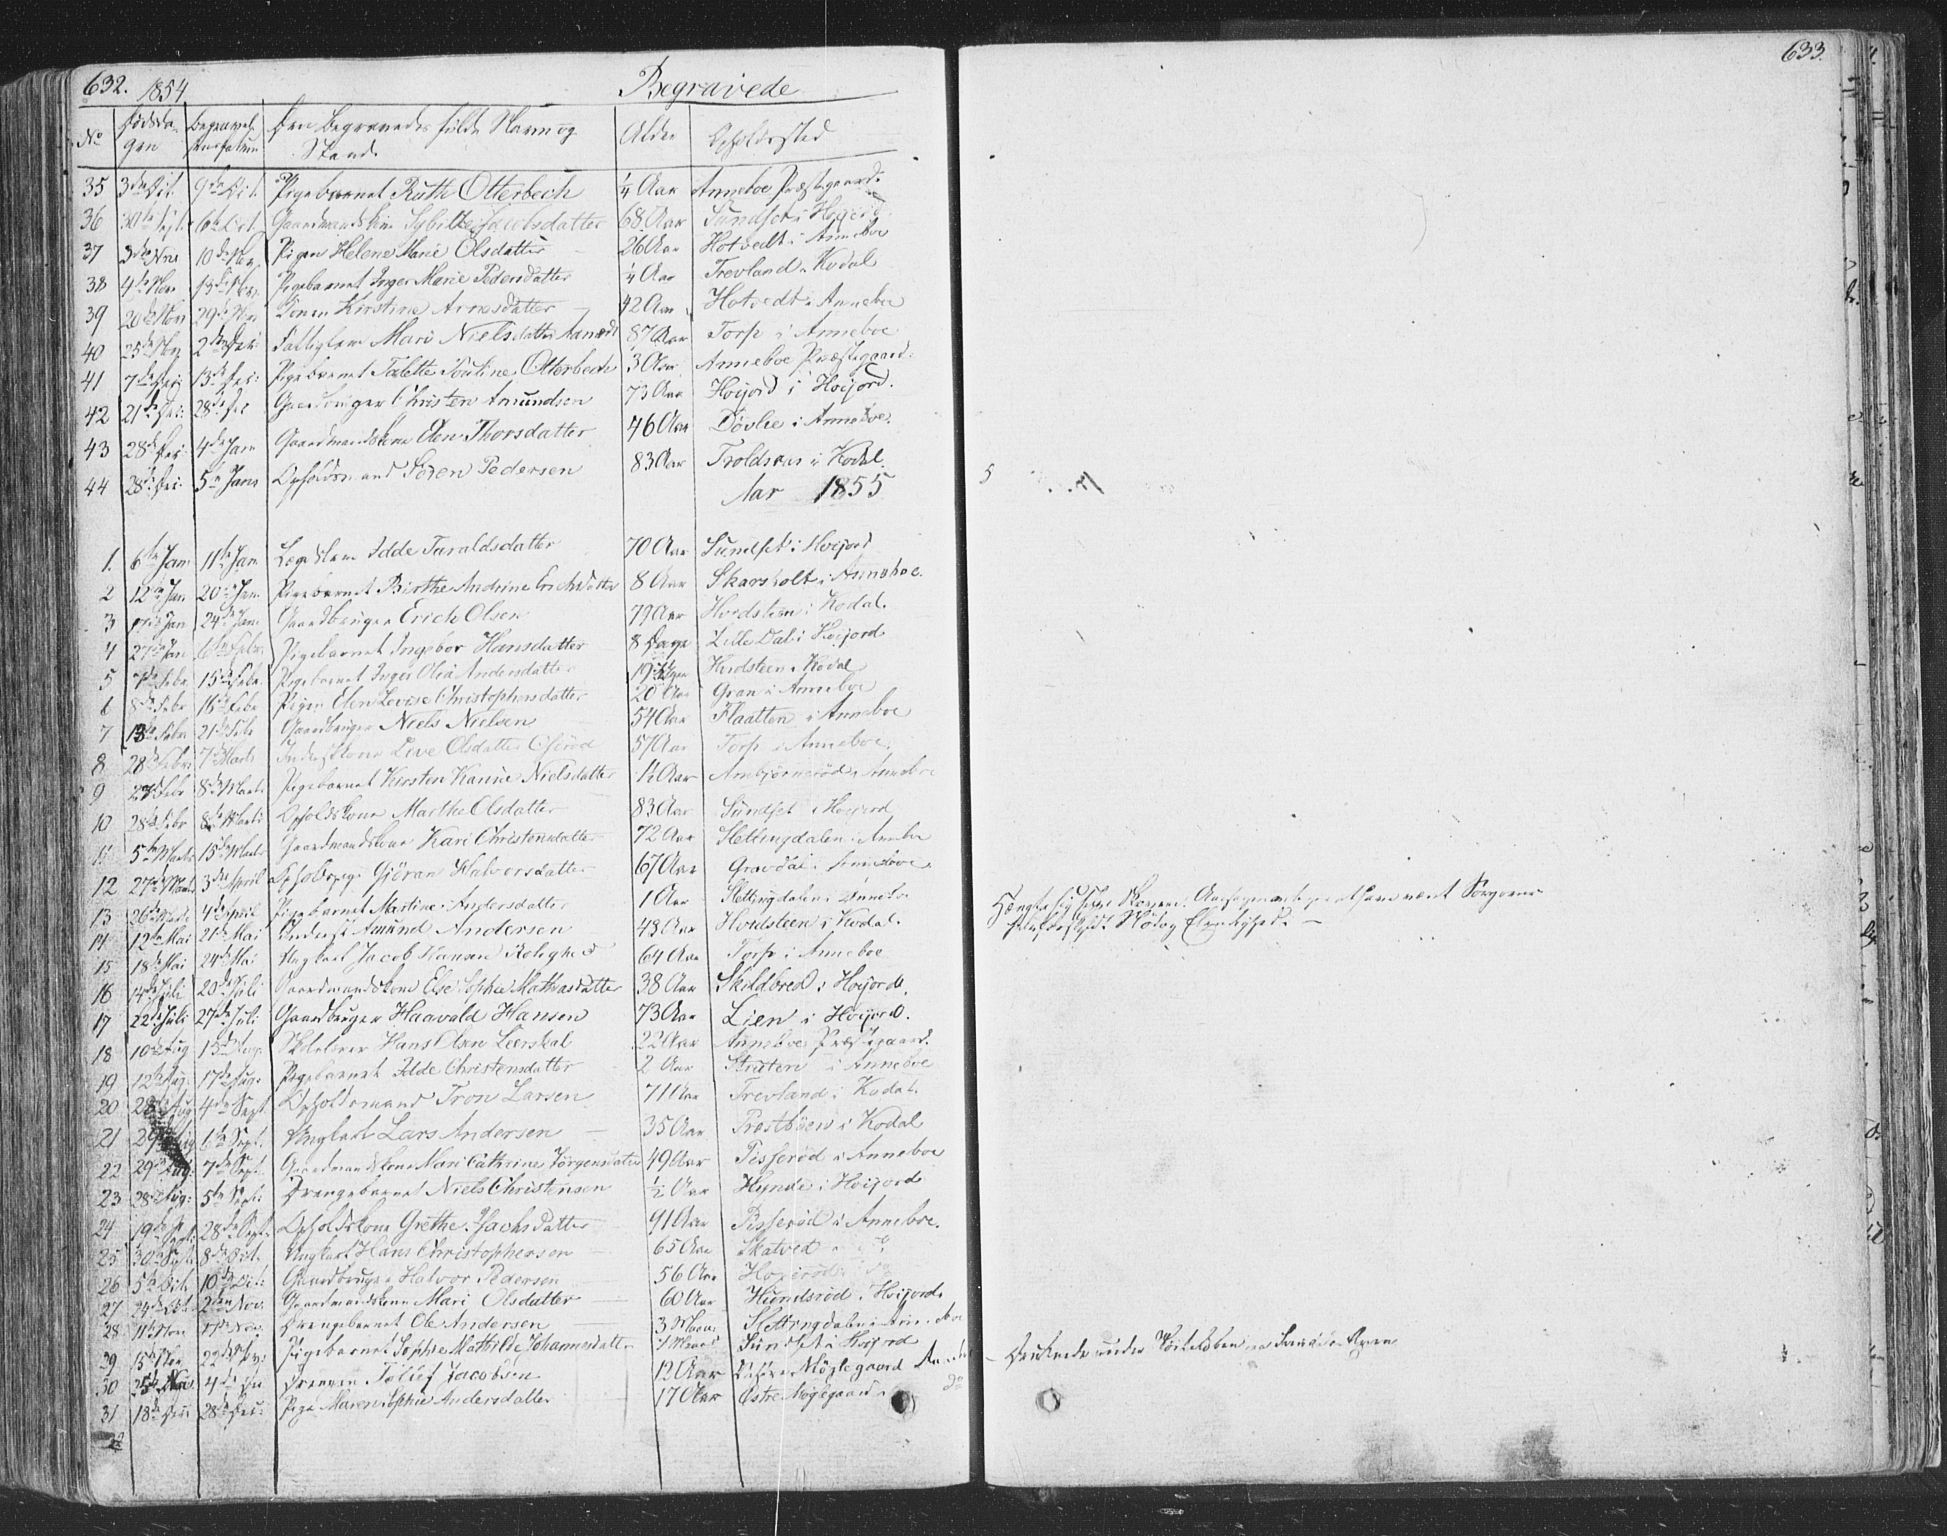 632. 1854 Begravede
No Dødsdagen Begravelsesdatum Den Begravedes fulde Navn og Stand. Alder Opholdssted
35 3die Oct. 9de Oct. Pigebarnet Ruth Otterbech 1/4 Aar Anneboe Præstegaard.
36 30te Sept. 6te Oct. Gaardmandskone Sybille Jacobsdatter 68 Aar Sundset i Høijord
37 3die Nov 10de Nov. Pigen Helene Marie Olsdatter 26 Aar Hotvedt i Anneboe
38 4de Nov 13de Nov. Pigebarnet Inger Marie Pedersdatter 1/4 Aar Trevland i Kodal
39 20de Nov 29de Nov Konen Kirstine Arnesdatter 42 Aar Hotvedt i Anneboe
40 25de Nov 2den Dec: Fattiglem Mari Nielsdatter 87 Aar Torp i Anneboe
41 7de Dec 13de Dec: Pigebarnet Talette Pouline Otterbech 3 Aar Anneboe Præstegaard.
42 21de Dec: 28de Dec Gaardbruger Christen Amundsen 73 Aar Høijord i Høijord.
43 28de Dec: 4de Jan Gaardmandskone Elen Thorsdatter 46 Aar Døvlee i Anneboe.
44 28de Dec: 5te Jan Opholdsmand Søren Pedersen 83 Aar Troldsaas i Kodal.
Aar 1855
1. 6te Jan 11te Jan. Lægdslem Idde Taraldsdatter 70 Aar Sundset i Høijord
2 12te Jan 20de Jan. Pigebarnet Birthe Andrine Erichsdatter 8 Aar Skarsholt i Anneboe.
3 Jan 24de Jan. Gaardbruger Erich Olsen 79 Aar Hvidsteen i Kodal.
4 27de Jan 6te Febr. Pigebarnet Ingebor Hansdatter 8 Dage Lille Dal i Høijord
5 7de Febr 15de Febr. Pigebarnet Inger Olea Andersdatter 19 Hvidsteen i Kodal
6 8de Febr 15de Febr Pigen Elen Lovise Christophersdatter 20 Aar Gran i Anneboe
7 13de Febr. 21de Febr Gaardbruger Niels Nielsen 54 Aar Flaatten i Anneboe
8 28de Febr: 7de Marts Inderstkone Live Olsdatter 57 Aar Torp i Anneboe.
9 27de Febr 8de Marts. Pigebarnet Kirsten Karine Nielsdatter 1/2 Aar Ambjørnerød i Anneboe
10 28de Febr 8de Marts Opholdskone Marthe Olsdatter 83 Aar Sundset i Høijord
11 5te Marts 15de Marts Gaardmandskone Kari Christensdatter 72 Aar Slettingdalen i Anneboe
12 27de Marts 3die April Opholdspige Gjøran Halvorsdatter 67 Aar Gravdal i Anneboe.
13 26de Marts 4de April Pigebarnet Martine Andersdatter 1 Aar Slettingdalen i Anneboe
14 12te Mai 21de Mai Inderst Amund Andersen 48 Aar Hvidsteen i Kodal.
15 18de Mai 24de Mai Ungkarl Jacob Hansen 64 Aar Torp i Anneboe
16 14de Juli 20de Juli Gaardmandskone Else Sophie Mathiasdatter 38 Aar Skildbred i Høijord.
17 22de Juli 27de Juli Gaardbruger Haavald Hansen 73 Aar Lien i Høijord.
18 10de Aug 15de Aug. Skolelærer Hans Olsen Leerskal 22 Aar Anneboe Præstegaard.
19 12te Aug. 17de Aug: Pigebarnet Idde Christensdatter 2 Aar Straten i Anneboe
20 28de Aug 4de Sept Opholdsmand Tron Larsen 71 Aar Trevland i Kodal.
21 29de Aug 1ste Sept. Ungkarl Lars Andersen 35 Aar Prestbøen i Kodal
22 29de Aug: 7de Sept. Gaardmandskone Mari Cathrine Jørgensdatter 49 Aar Pisserød i Anneboe
23 28de Aug: 5te Sept: Drengebarnet Niels Christensen 1/2 Aar Hynde i Høijord
24 19de Sept 28de Sept. Opholdskone Grethe Isachsdatter 91 Aar Pisserød i Anneboe.
25 30te Sept. 8de Oct. Ungkarl Hans Christophersen 65 Aar Skatved i do
26 5te Oct. 10de Oct: Gaardbruger Halvor Pedersen 56 Aar
27 24de Oct. 2den Nov. Gaardmandskone Mari Olsdatter 60 Aar Hundsrød i Høijord.
28 11te Nov Drengebarnet Ole Andersen 3 Maan: Slettingdalen i Anneboe
29 15de Nov 22de Nov. Pigebarnet Sophie Mathilde Johannesdatter Sundset i Høijord
30 25de Nov 4de Dec Drengen Tollef Jacobsen 12 Aar Møglegaard Anneboe
31 18de Dec 28de Dec: Pige Maren Sophie Andersdatter 17 Aar Østre Møglegaard i do
633.
Hængte sig i Skoven.